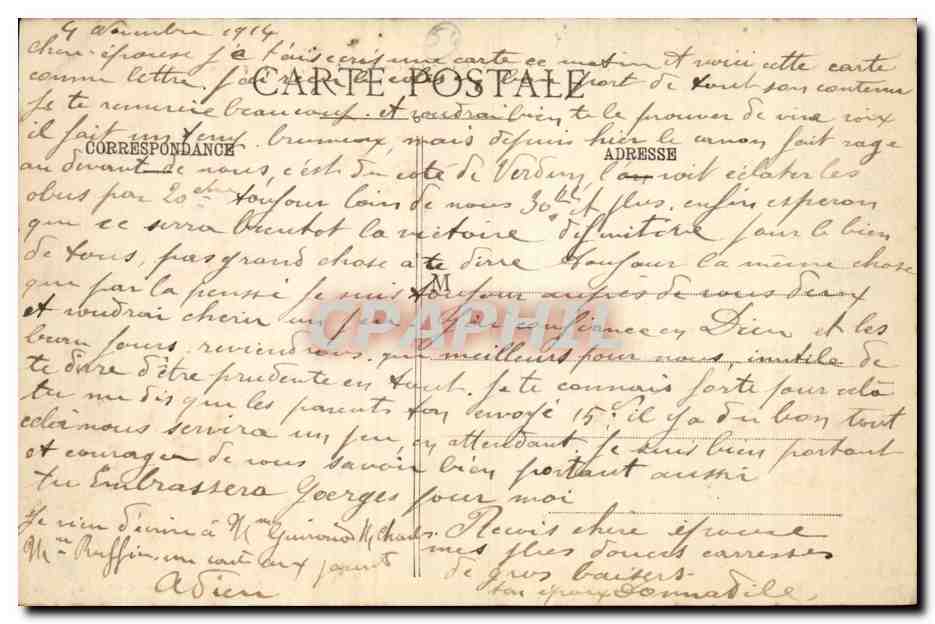 4 novembre 1914
chere épouse j'é t'ais ecris une carte ce matin et voici cette carte
CARTE POSTALE
comme lettre j'ai reçu le colis bon port de tout son contenu
je te remercie beaucoup et voudrai bien te le prouver de vive voix
il fait un temp brumeux, mais depuis hier le canon fait rage
CORRESPONDANCE
ADRESSE
au devant de nous, c'est du coté de Verdun l'on voit éclater les
obus par 20 toujour loin de nous 30 et plus. enfin esperon
que ce serra bientot la victoire definitive pour le bien
de tous, pas grand chose a te dirre toujour la même chose
M
que par la penssé je suis toujour aupres de vous deux
CPAPHIL
et voudrai cherie un peu confiance en Dieu et les
baun jours reviendrons. que meilleurs pour nous, inutile de
te dirre d'être prudente en tout. je te connais forte pour cela
tu me dis que les parents ton envoyé 15f il y a du bon tout
celà nous servira un peu en attendant. je suis bien portant
et courageu de vous savoir bien portant aussi
tu Embrassera Goerges pour moi
je vien d'ecrire à Mme Charles
Mme Ruffin une carte aux
Adieu
Reçois chere épouse
mes plus douces carresses
de gros baisers
ton époux Donnadille.